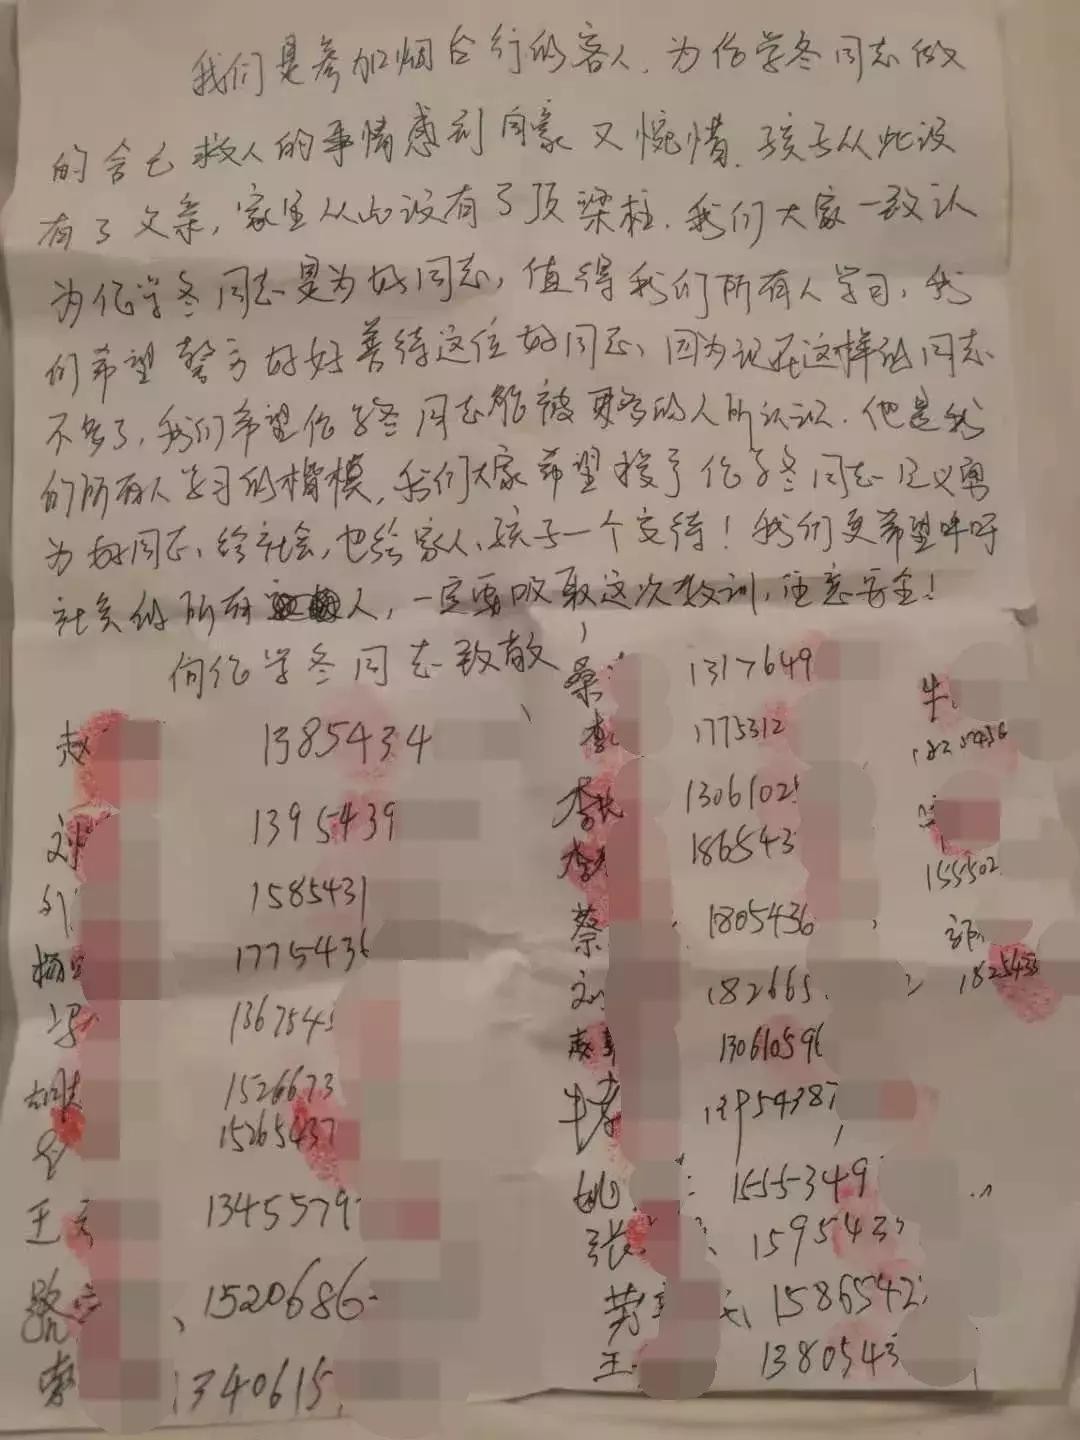 我们是参加烟台行的客人，为伦学冬同志做
的舍己救人的事情感到自豪又惋惜，孩子从此没
有了父亲，家里从此没有了顶梁柱，我们大家一致认
为伦学冬同志是为好同志，值得我们所有人学习，我
们希望警方好好善待这位好同志，因为现在这样的同志
不多了，我们希望伦学冬同志能被更多的人所认识，他是我
们所有人学习的楷模，我们大家希望授予伦学冬同志见义勇
为好同志，给社会，也给家人、孩子一个交待！我们更希望呼吁
社会的所有人，一定要吸取这次教训，注意安全！
向伦学冬同志致敬
赵 1385434
刘 1395439
1585431
杨 1775436
136754
胡 1526673
15265437
王 1345579
路 1520686
1340615
桑 1317649
李 1775312
李 1306102
李 186543
蔡 1805436
刘 182665
赵 13061059
牛 13954387
姚 1555349
张 159543
1586542
王 1380543
牛
155502
1825433